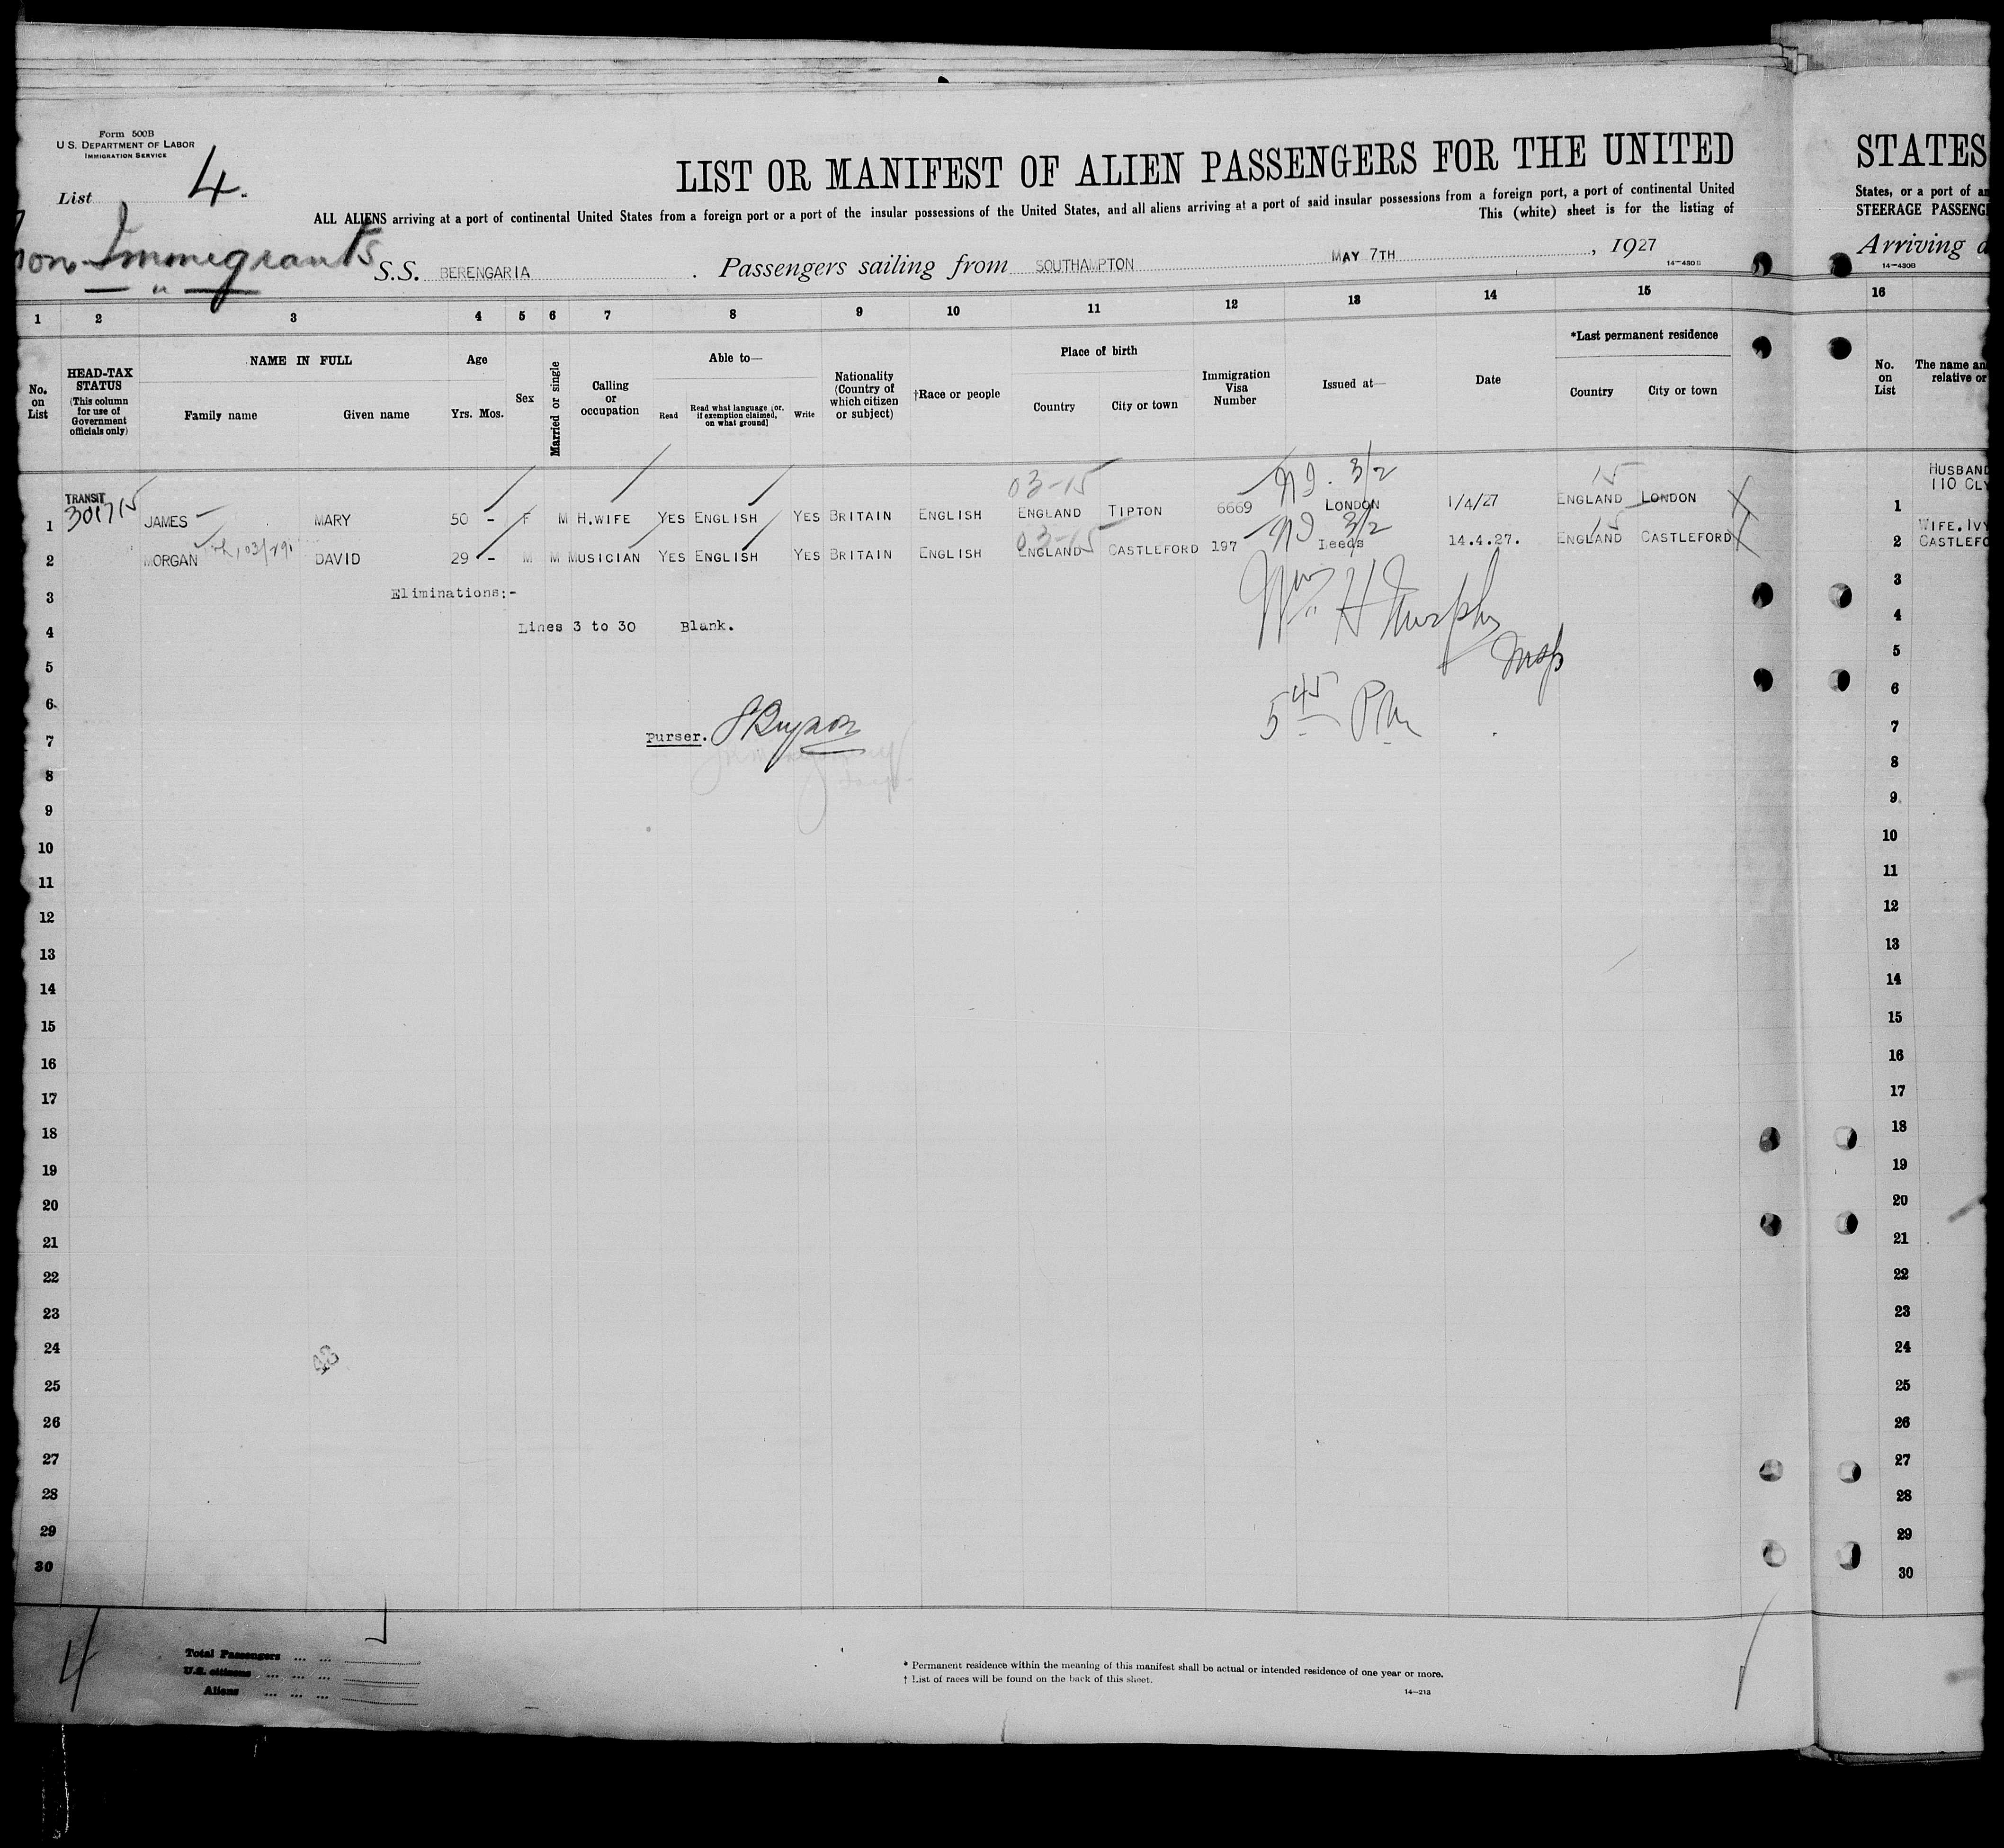 Form 500B
U.S. DEPARTMENT OF LABOR
IMMIGRATION SERVICE
List 4.
Non-Immigrants
LIST OR MANIFEST OF ALIEN PASSENGERS FOR THE UNITED
ALL ALIENS arriving at a port of continental United States from a foreign port or a port of the insular possessions of the United States, and all aliens arriving at a port of said insular possessions from a foreign port, a port of continental United
This (white) sheet is for the listing of
S.S. BERENGARIA. Passengers sailing from SOUTHAMPTON MAY 7TH, 1927
14-430B
STATES
States, or a port of
STEERAGE
Arriving
14-430B
1 2 3 4 5 6 7 8 9 10 11 12 13 14 15
16
No. on List
HEAD-TAX STATUS (This column for use of Government officials only)
NAME IN FULL
Family name Given name
Age
Yrs. Mos.
Sex
Married or single
Calling or occupation
Able to—
Read Read what language [or, if exemption claimed, on what ground] Write
Nationality (Country of which citizen or subject)
†Race or people
Place of birth
Country City or town
Immigration Visa Number
Issued at—
Date
*Last permanent residence
Country City or town
No. on List
The name
relative or
03-15 3/2 15
TRANSIT 301715
1 JAMES MARY 50 - F M H.WIFE YES ENGLISH YES BRITAIN ENGLISH ENGLAND TIPTON 6669 LONDON 1/4/27 ENGLAND LONDON
03-15 3/2 15
2 MORGAN DAVID 29 - M M MUSICIAN YES ENGLISH YES BRITAIN ENGLISH ENGLAND CASTLEFORD 197 Leeds 14.4.27. ENGLAND CASTLEFORD X
1 HUSBAND
110
2 WIFE.
3 Eliminations:-
4 Lines 3 to 30 Blank.
Wm. H Murphy
Insp
5
6 5 45 PM
7 Purser.
8
9
10
11
12
13
14
15
16
17
18
19
20
21
22
23
24
25
26
27
28
29
30
3
4
5
6
7
8
9
10
11
12
13
14
15
16
17
18
19
20
21
22
23
24
25
26
27
28
29
30
4
Total Passengers ... ...
U.S. citizens ... ... ...
Aliens ... ... ...
* Permanent residence within the meaning of this manifest shall be actual or intended residence of one year or more.
† List of races will be found on the back of this sheet.
14-213